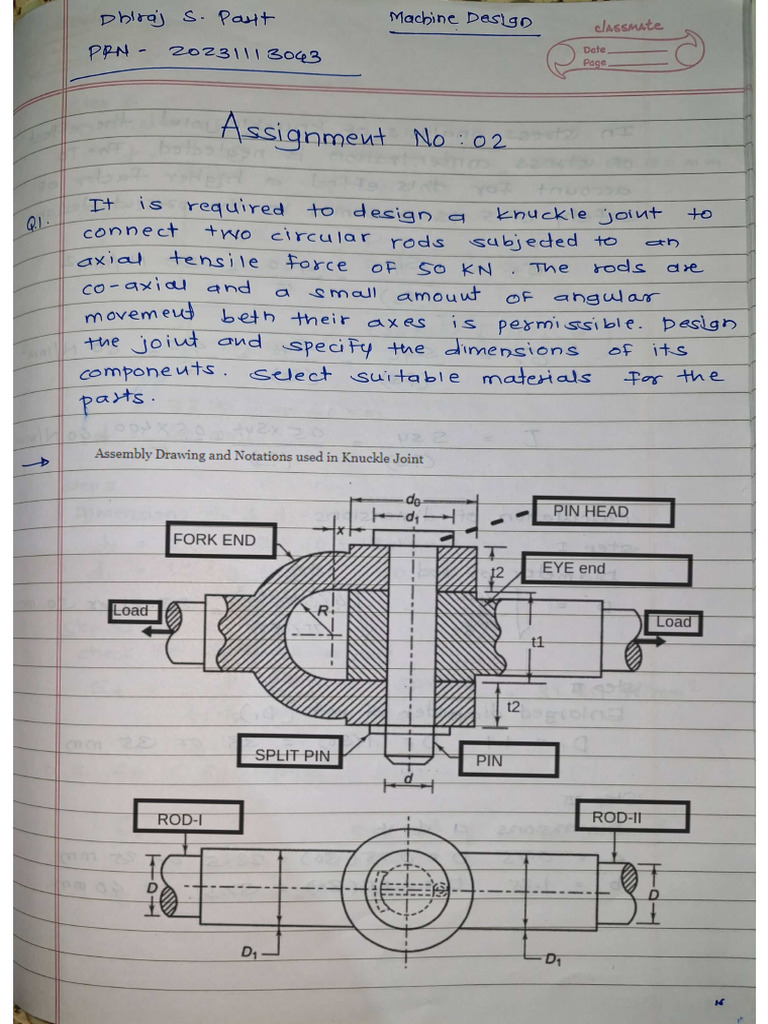 Dhiraj S. Patil
Machine Design
classmate
Date
Page
PRN - 20231113043
Assignment No : 02
Q1. It is required to design a knuckle joint to
connect two circular rods subjected to an
axial tensile force of 50 KN. The rods are
co-axial and a small amount of angular
movement betn their axes is permissible. Design
the joint and specify the dimensions of its
components. select suitable materials for the
parts.
→ Assembly Drawing and Notations used in Knuckle Joint
d0
d1
x
PIN HEAD
FORK END
t2
EYE end
Load
R
Load
t1
t2
SPLIT PIN
PIN
d
ROD-I
ROD-II
D
D
D1
D1